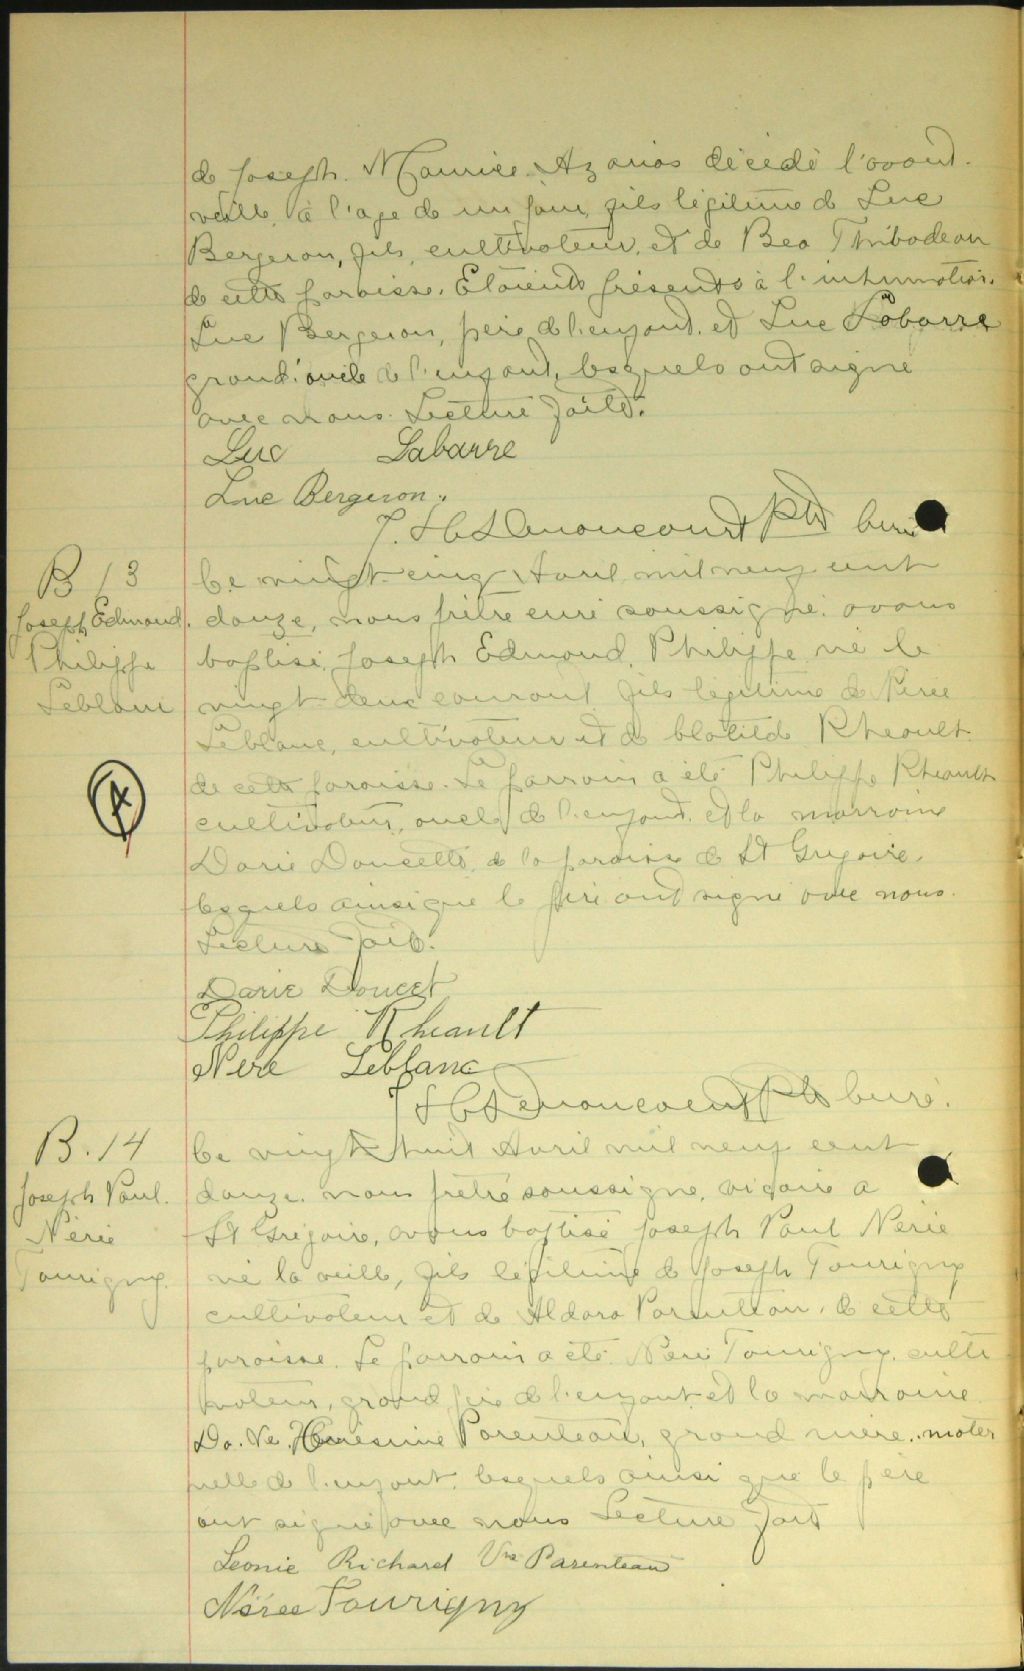 de Joseph Maurice Azarias décédé l'avant
veille, à l'age de un jour, fils légitime de Luc
Bergeron, fils, cultivateur, et de Bea Thibodeau
de cette paroisse. Etaient présents à l'inhumation.
Luc Bergeron, père de l'enfant, et Luc Labarre
grand'oncle de l'enfant, lesquels ont signé
avec nous. Lecture faite.
Luc Labarre
Luc Bergeron.
J. H. L. Denoncourt Ptre Curé
B 13
Joseph Edmond
Philippe
Leblanc
Ce vingt-cinq Avril mil neuf cent
douze, nous prêtre curé soussigné, avons
baptisé Joseph Edmond Philippe né le
vingt deux courant fils légitime de Nérée
Leblanc, cultivateur et de Clotilde Rheault
de cette paroisse. Le parrain a été Philippe Rheault
cultivateur, oncle de l'enfant, et la marraine
Darie Doucette, de la paroisse de St Grégoire,
lesquels ainsi que le père ont signé avec nous.
Lecture faite.
A
Darie Doucet
Philippe Rheault
Nere Leblanc
J H L Denoncourt Ptre Curé.
B. 14
Joseph Paul
Nérée
Tourigny.
Ce vingt huit Avril mil neuf cent
douze, nous prêtre soussigné, vicaire a
St Grégoire, avons baptisé Joseph Paul Nérée
né la veille, fils légitime de Joseph Tourigny
cultivateur et de Aldora Parenteau, de cette
paroisse. Le parrain a été Nérée Tourigny, culti
vateur, grand père de l'enfant et la marraine
Da. Ve. Parenteau, grand mère mater
nelle de l'enfant, lesquels ainsi que le père
ont signé avec nous Lecture faite
Leonie Richard Vve Parenteau
Nérée Tourigny